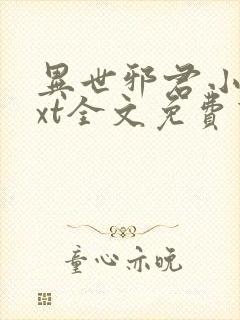 異世邪君小
xt全文免費
童心亦晚